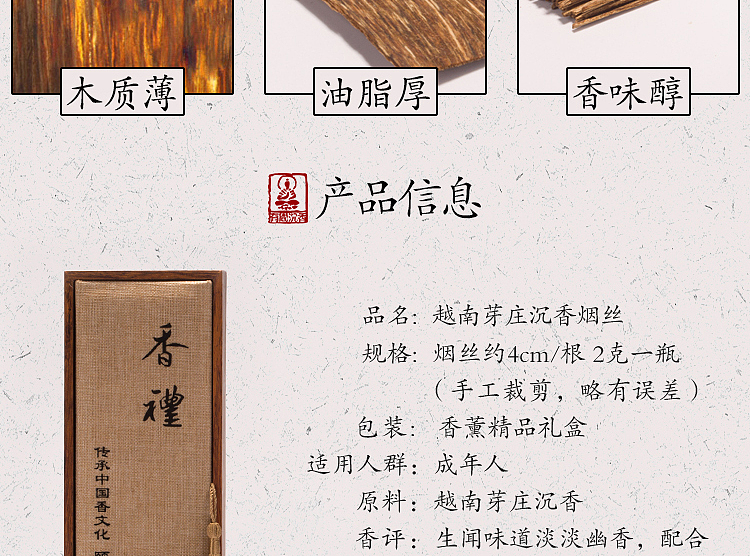 木质薄
油脂厚
香味醇
产品信息
品名: 越南芽庄沉香烟丝
规格: 烟丝约4cm/根 2克一瓶
（手工裁剪，略有误差）
包装: 香薰精品礼盒
适用人群: 成年人
原料: 越南芽庄沉香
香评: 生闻味道淡淡幽香，配合
香禮
传承中国香文化